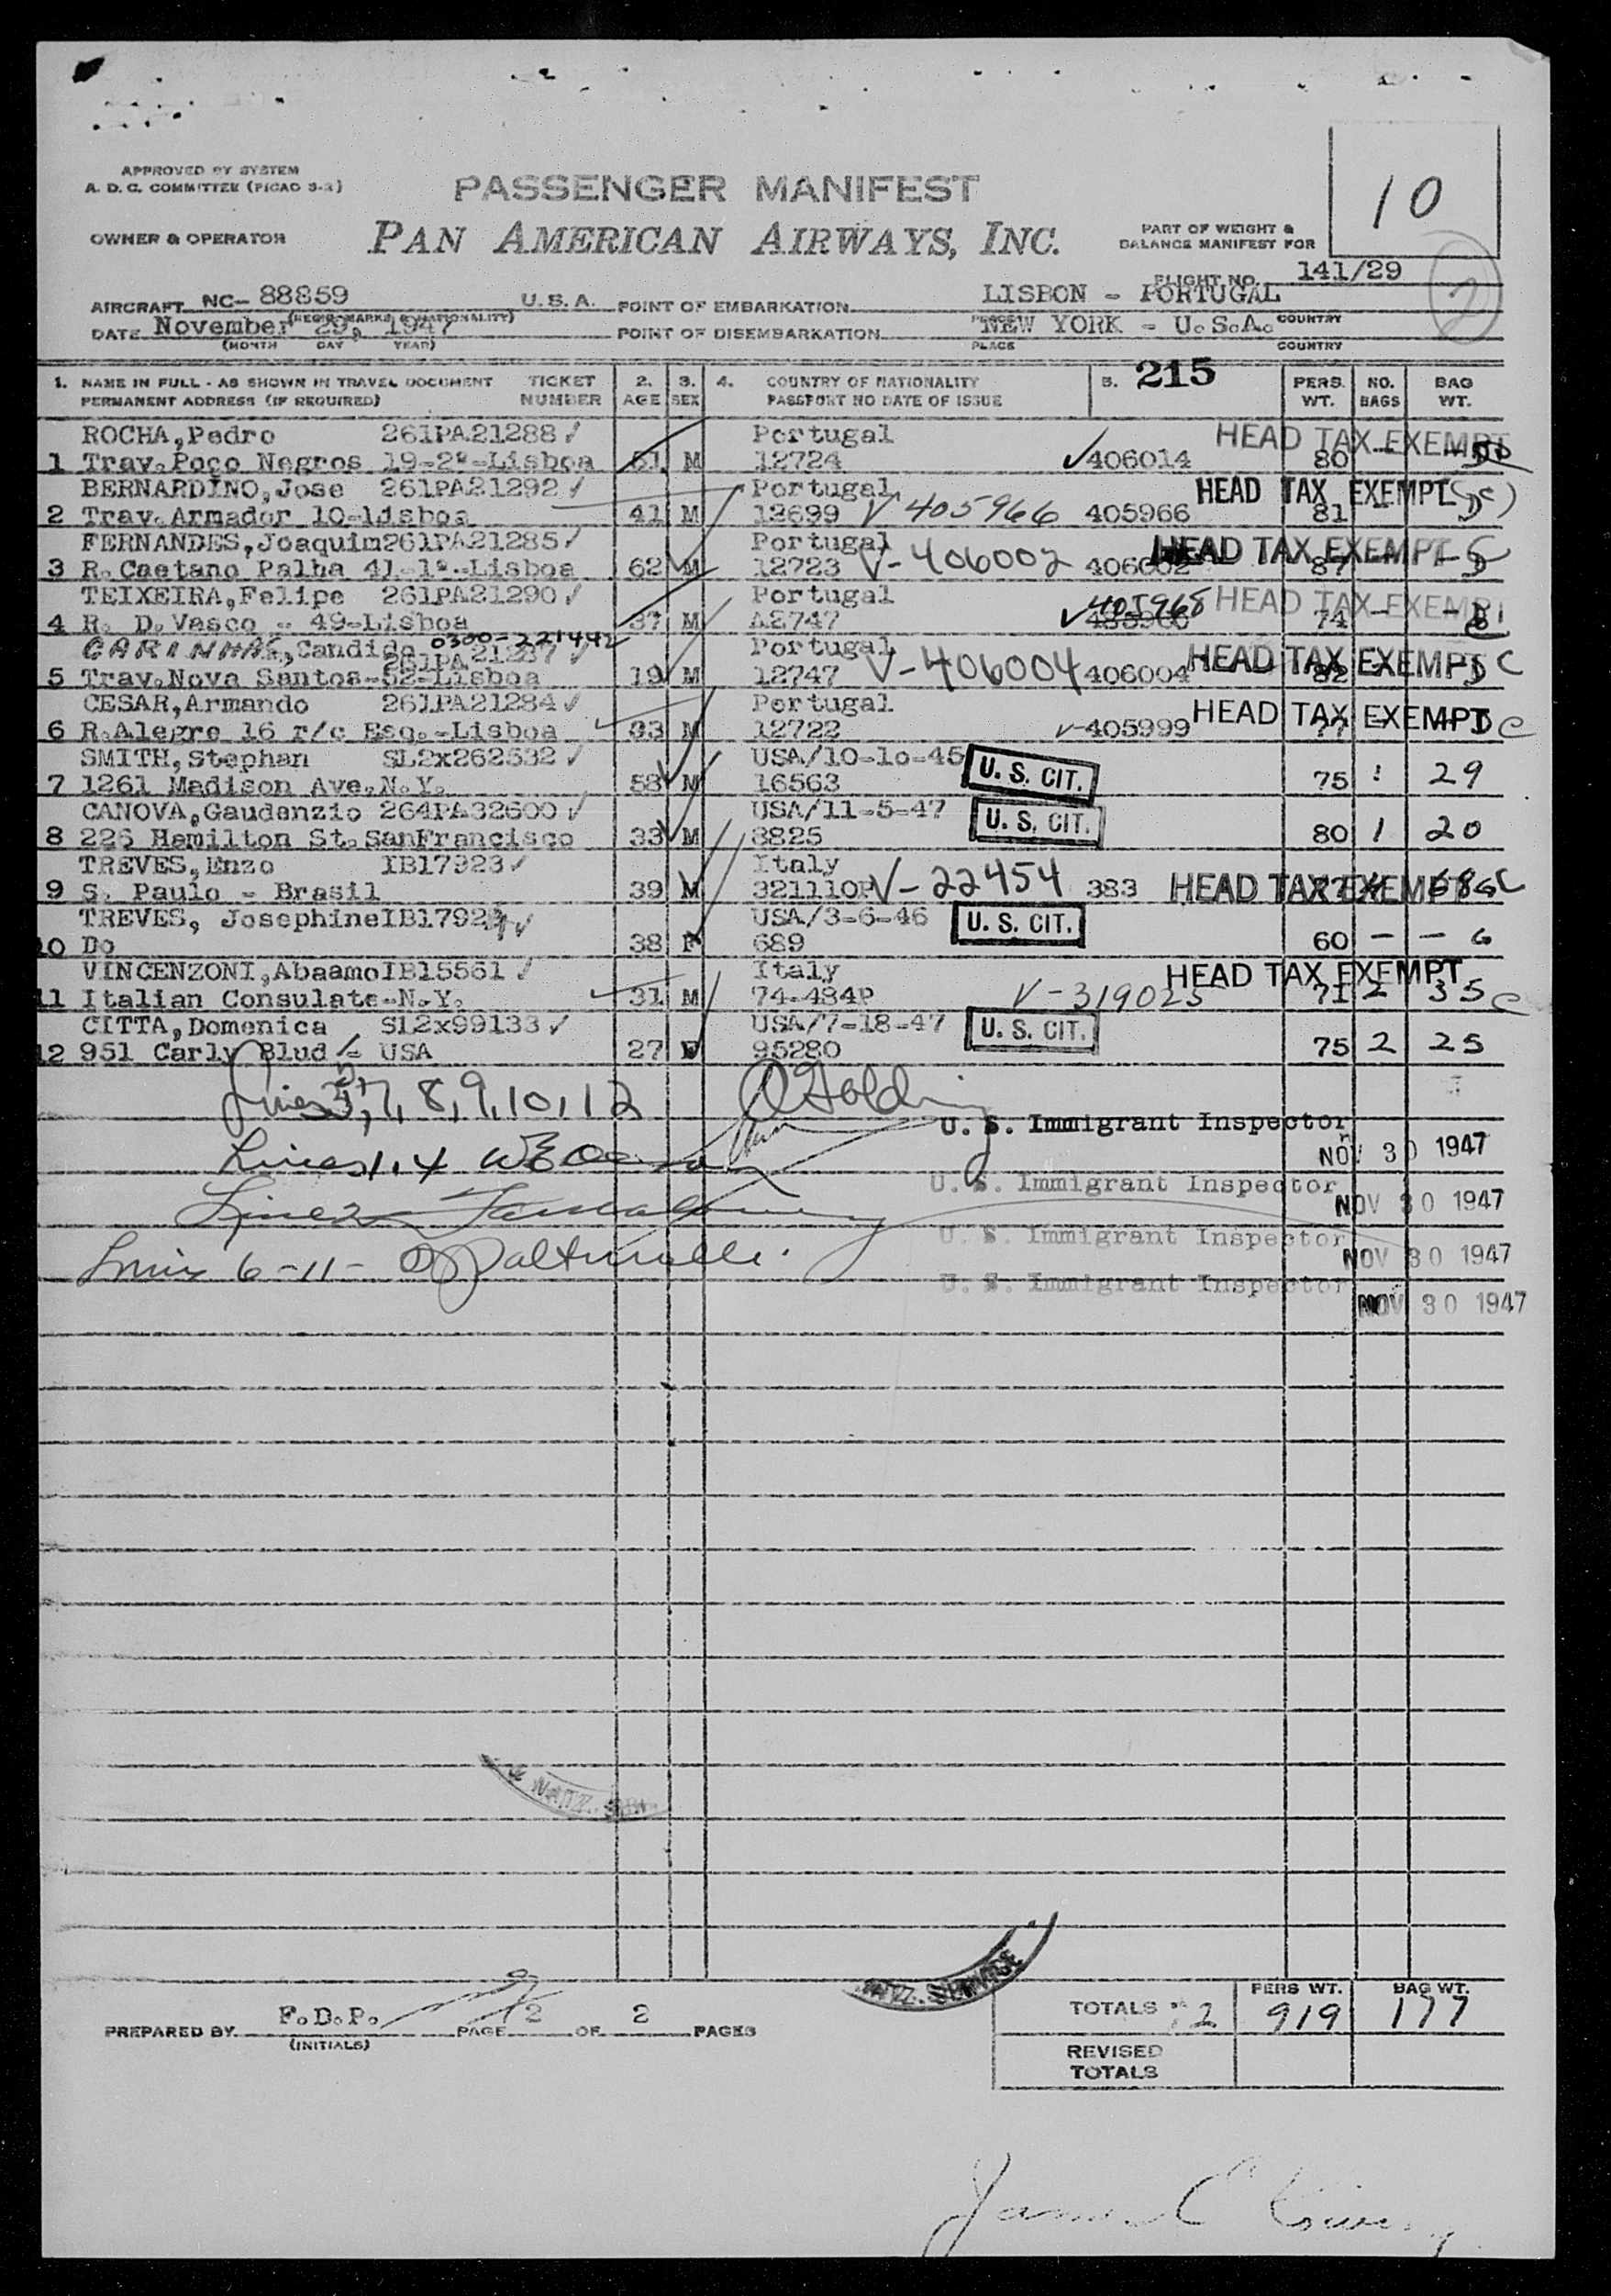 APPROVED BY SYSTEM
A. D. C. COMMITTEE (PICAO 3-2)
PASSENGER MANIFEST
10
OWNER & OPERATOR
PAN AMERICAN AIRWAYS, INC.
PART OF WEIGHT &
BALANCE MANIFEST FOR
FLIGHT NO. 141/29
2
AIRCRAFT NC- 88859 U. S. A. POINT OF EMBARKATION LISBON - PORTUGAL
(REG'D MARKS & NATIONALITY) PLACE COUNTRY
DATE November 29, 1947 POINT OF DISEMBARKATION NEW YORK - U.S.A.
(MONTH DAY YEAR) PLACE COUNTRY
1. NAME IN FULL - AS SHOWN IN TRAVEL DOCUMENT TICKET 2. 3. 4. COUNTRY OF NATIONALITY 5. 215 PERS. NO. BAG
PERMANENT ADDRESS (IF REQUIRED) NUMBER AGE SEX PASSPORT NO DATE OF ISSUE WT. BAGS WT.
ROCHA, Pedro 261PA21288 Portugal HEAD TAX EXEMPT
1 Trav.Poço Negros 19-2º-Lisboa 51 M 12724 406014 80 -
BERNARDINO, Jose 261PA21292 Portugal HEAD TAX EXEMPT
2 Trav.Armador 10-Lisboa 41 M 12699 V 405966 405966 81 -
FERNANDES, Joaquim 261PA21285 Portugal HEAD TAX EXEMPT
3 R. Caetano Palha 41-1º-Lisboa 62 M 12723 V-406002 406002 87 -
TEIXEIRA, Felipe 261PA21290 Portugal 405968 HEAD TAX EXEMPT
4 R. D. Vasco - 49-Lisboa 37 M A2747 485966 74 -
CARINHAS, Candido 0300-221442 261PA21287 Portugal HEAD TAX EXEMPT
5 Trav.Nova Santos-52-Lisboa 19 M 12747 V-406004 406004 82 - C
CESAR, Armando 261PA21284 Portugal HEAD TAX EXEMPT
6 R.Alegre 16 r/c Esq.-Lisboa 33 M 12722 V-405999 77 - C
SMITH, Stephan SL2x262532 USA/10-10-45 U. S. CIT.
7 1261 Madison Ave.N.Y. 58 M 16563 75 1 29
CANOVA, Gaudenzio 264PA32600 USA/11-5-47 U. S. CIT.
8 226 Hamilton St.SanFrancisco 33 M 8825 80 1 20
TREVES, Enzo IB17923 Italy
9 S. Paulo - Brasil 39 M 321110P V-22454 383 HEAD TAX EXEMPT
TREVES, Josephine IB17924 USA/3-6-46 U. S. CIT.
10 Do 38 F 689 60 - - 6
VINCENZONI, Abaamo IB15561 Italy HEAD TAX EXEMPT
11 Italian Consulate-N.Y. 31 M 74-484P V-319025 71 2 35 C
CITTA, Domenica SL2x99133 USA/7-18-47 U. S. CIT.
12 951 Carly Blud - USA 27 F 95280 75 2 25
Lines 3, 7, 8, 9, 10, 12
U. S. Immigrant Inspector
Lines 1, 4 NOV 30 1947
U. S. Immigrant Inspector
Line 2 NOV 30 1947
U. S. Immigrant Inspector
Lines 6-11- NOV 30 1947
U. S. Immigrant Inspector
NOV 30 1947
NATZ. SER
NATZ. SERVICE
PREPARED BY F.D.P. PAGE 2 OF 2 PAGES
(INITIALS)
PERS WT. BAG WT.
TOTALS 12 919 177
REVISED
TOTALS
James C